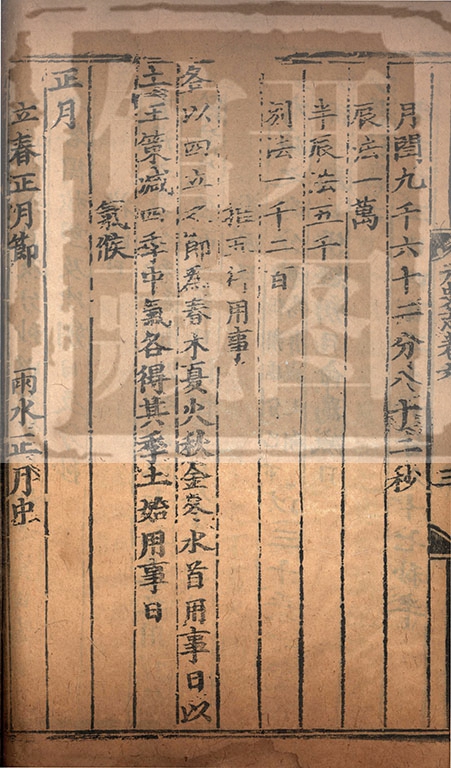 月閏九千六十二分八十二秒
辰法一萬
半辰法五千
刻法一千二百
推五行用事
各以四立之節爲春木夏火秋金冬水首用事日以
土王策减四季中氣各得其季土始用事日
氣候
正月
立春正月節 雨水正月中
三